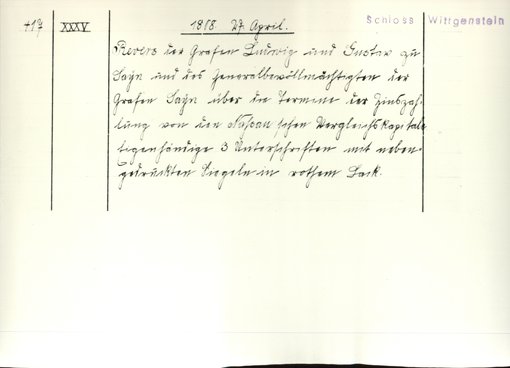 417 XXXV 1818. 27. April. Schloss Wittgenstein
Revers der Grafen Ludwig und Gustav zu
Sayn und des Generalbevollmächtigten der
Grafen Sayn über die Termine der Zinszah-
lung von den Nassau'schen Vergleichskapitale
Eigenhändige 3 Unterschriften mit neben-
gedruckten Siegeln in rothem Lack.